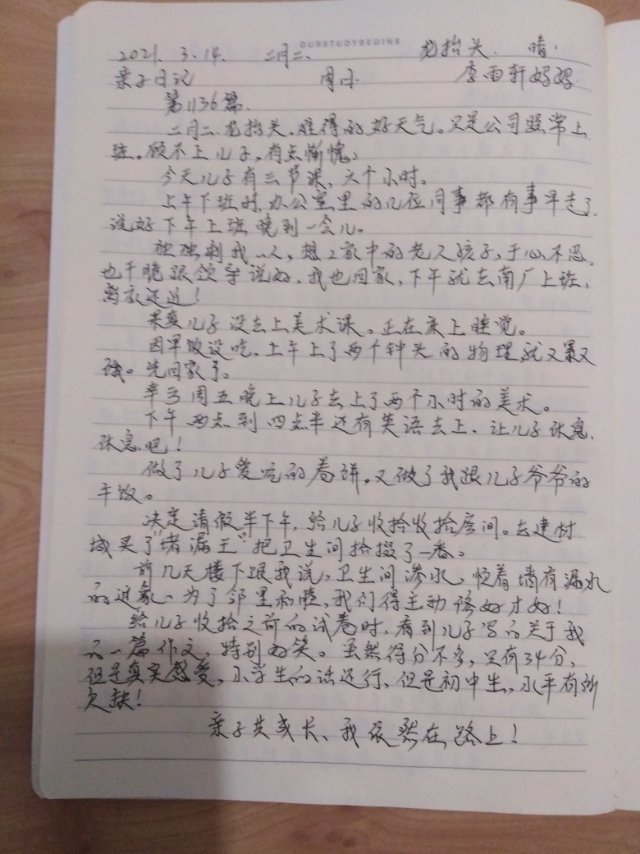 OURSTUDYBEGINS
2021. 3. 14. 二月二. 龙抬头. 晴.
亲子日记 周日. 李雨轩妈妈
第1136篇.
二月二龙抬头,难得的好天气。又是公司照常上
班。顾不上儿子,有点惭愧。
今天儿子有三节课,六个小时。
上午下班时,办公室里的几位同事都有事早走了.
说好下午上班晚到一会儿。
独独剩我一人,想上家中的老人孩子,于心不忍,
也干脆跟领导说好,我也回家,下午就去南厂上班,
离家还近!
果真儿子没去上美术课。正在床上睡觉。
因早饭没吃,上午上了两个钟头的物理就又累又
饿。先回家了。
幸亏周五晚上儿子去上了两个小时的美术。
下午两点到四点半还有英语去上,让儿子休息
休息吧!
做了儿子爱吃的卷饼,又做了我跟儿子爷爷的
午饭。
决定请假半下午,给儿子收拾收拾房间。去建材
城买了"堵漏王"把卫生间拾掇了一番。
前几天楼下跟我说,卫生间渗水,恒着墙有漏水
的迹象。为了邻里和睦,我们得主动修好才好!
给儿子收拾之前的试卷时,看到儿子写的关于我
的一篇作文,特别好笑。虽然得分不多,只有34分,
但是真实感受,小学生的话还行,但是初中生,水平有所
欠缺!
亲子共成长、我依然在路上!